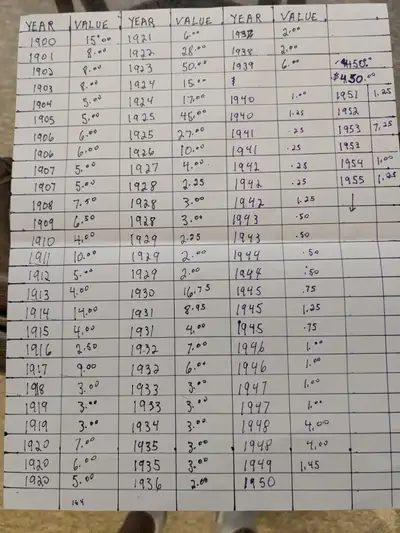 YEAR VALUE YEAR VALUE YEAR VALUE
1900 15.00 1921 6.00 1937 2.00
1901 8.00 1922 28.00 1938 2.00
1902 8.00 1923 50.00 1939 6.00
1903 8.00 1924 15.00 $ $4.50.00
1904 5.00 1924 17.00 1940 1.00 1951 1.25
1905 5.00 1925 45.00 1940 1.25 1952
1906 6.00 1925 27.00 1941 .25 1953 7.25
1906 6.00 1926 10.00 1941 .25 1953
1907 5.00 1927 4.00 1942 .25 1954 1.00
1907 5.00 1928 2.25 1942 .25 1955 1.25
1908 7.50 1928 3.00 1942 1.25
1909 6.50 1928 3.00 1943 .50
1910 4.00 1929 2.25 1943 .50
1911 10.00 1929 2.00 1944 .50
1912 5.00 1929 2.00 1944 .50
1913 4.00 1930 16.75 1945 .75
1914 14.00 1931 8.95 1945 1.25
1915 4.00 1931 4.00 1945 .75
1916 2.50 1932 7.00 1946 1.00
1917 9.00 1932 6.00 1946 1.00
1918 3.00 1933 3.00 1947 1.00
1919 3.00 1933 3.00 1947 1.00
1919 3.00 1934 3.00 1948 4.00
1920 7.00 1935 3.00 1948 4.00
1920 6.00 1935 3.00 1949 1.45
1920 5.00 1936 2.00 1950
164